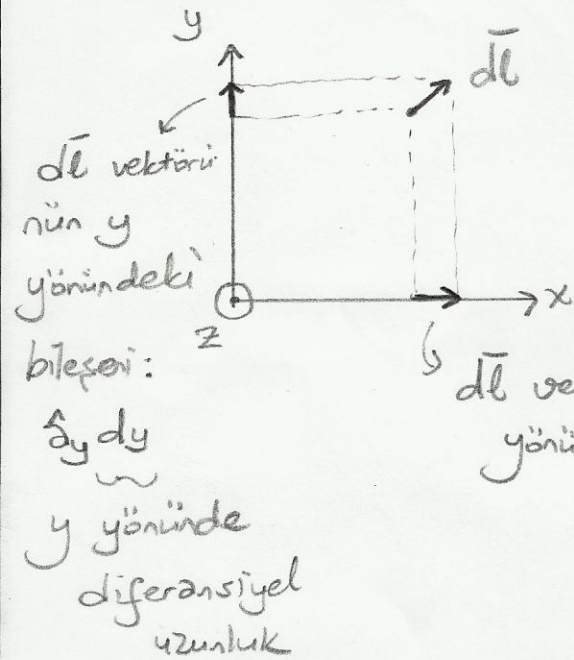 y
d̅l̅
d̅l̅ vektörü
nün y
yönündeki
bileşeni:
â_y dy
y yönünde
diferansiyel
uzunluk
z
x
d̅l̅ ve
yönü